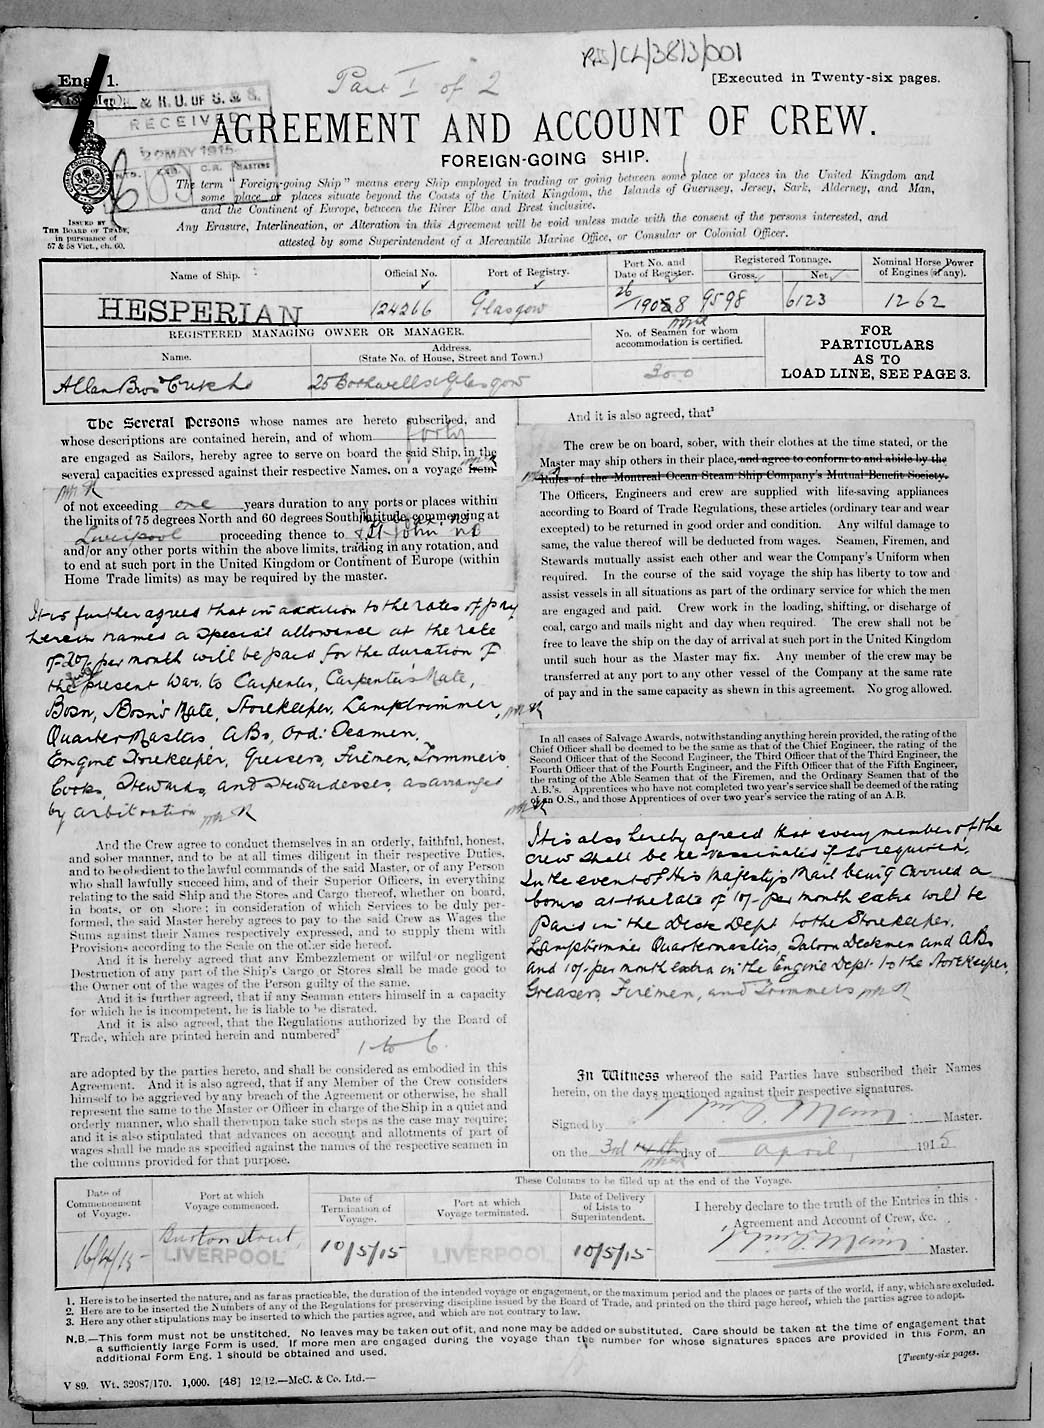 RSS/CL/3813/001
Eng. 1.
Part I of 2
[Executed in Twenty-six pages.
& R. O. OF S. & S.
RECEIVED
MAY 1915
AGREEMENT AND ACCOUNT OF CREW.
FOREIGN-GOING SHIP.
The term "Foreign-going Ship" means every Ship employed in trading or going between some place or places in the United Kingdom and
some place or places situate beyond the Coasts of the United Kingdom, the Islands of Guernsey, Jersey, Sark, Alderney, and Man,
and the Continent of Europe, between the River Elbe and Brest inclusive.
Any Erasure, Interlineation, or Alteration in this Agreement will be void unless made with the consent of the persons interested, and
attested by some Superintendent of a Mercantile Marine Office, or Consular or Colonial Officer.
ISSUED BY
THE BOARD OF TRADE,
in pursuance of
57 & 58 Vict., ch. 60.
Name of Ship.
Official No.
Port of Registry.
Port No. and
Date of Register.
Registered Tonnage.
Gross.
Net.
Nominal Horse Power
of Engines (if any).
HESPERIAN
124266
Glasgow
26/1908
9598
6123
1262
REGISTERED MANAGING OWNER OR MANAGER.
Name.
Address.
(State No. of House, Street and Town.)
No. of Seamen for whom
accommodation is certified.
FOR
PARTICULARS
AS TO
LOAD LINE, SEE PAGE 3.
Allan Bros
25 Bothwell St Glasgow
300
The Several Persons whose names are hereto subscribed, and
whose descriptions are contained herein, and of whom forty
are engaged as Sailors, hereby agree to serve on board the said Ship, in the
several capacities expressed against their respective Names, on a voyage from
of not exceeding one years duration to any ports or places within
the limits of 75 degrees North and 60 degrees South latitude, commencing at
Liverpool proceeding thence to St John NB
and/or any other ports within the above limits, trading in any rotation, and
to end at such port in the United Kingdom or Continent of Europe (within
Home Trade limits) as may be required by the master.
It is further agreed that in addition to the rates of pay
herein named a special allowance at the rate
of 20/- per month will be paid for the duration of
the present War to Carpenter, Carpenter's Mate,
Bosn, Bosn's Mate, Storekeeper, Lamptrimmer,
Quarter Masters, ABs, Ord: Seamen,
Engine Storekeeper, Greasers, Firemen, Trimmers,
Cooks, Stewards, and Stewardesses, as arranged
by arbitration
And the Crew agree to conduct themselves in an orderly, faithful, honest,
and sober manner, and to be at all times diligent in their respective Duties,
and to be obedient to the lawful commands of the said Master, or of any Person
who shall lawfully succeed him, and of their Superior Officers, in everything
relating to the said Ship and the Stores and Cargo thereof, whether on board,
in boats, or on shore; in consideration of which Services to be duly per-
formed, the said Master hereby agrees to pay to the said Crew as Wages the
Sums against their Names respectively expressed, and to supply them with
Provisions according to the Scale on the other side hereof.
And it is hereby agreed that any Embezzlement or wilful or negligent
Destruction of any part of the Ship's Cargo or Stores shall be made good to
the Owner out of the wages of the Person guilty of the same.
And it is further agreed, that if any Seaman enters himself in a capacity
for which he is incompetent, he is liable to be disrated.
And it is also agreed, that the Regulations authorized by the Board of
Trade, which are printed herein and numbered²
1 to 6.
are adopted by the parties hereto, and shall be considered as embodied in this
Agreement. And it is also agreed, that if any Member of the Crew considers
himself to be aggrieved by any breach of the Agreement or otherwise, he shall
represent the same to the Master or Officer in charge of the Ship in a quiet and
orderly manner, who shall thereupon take such steps as the case may require;
and it is also stipulated that advances on account and allotments of part of
wages shall be made as specified against the names of the respective seamen in
the columns provided for that purpose.
And it is also agreed, that³
The crew be on board, sober, with their clothes at the time stated, or the
Master may ship others in their place, and agree to conform to and abide by the
Rules of the Montreal Ocean Steam Ship Company's Mutual Benefit Society.
The Officers, Engineers and crew are supplied with life-saving appliances
according to Board of Trade Regulations, these articles (ordinary tear and wear
excepted) to be returned in good order and condition. Any wilful damage to
same, the value thereof will be deducted from wages. Seamen, Firemen, and
Stewards mutually assist each other and wear the Company's Uniform when
required. In the course of the said voyage the ship has liberty to tow and
assist vessels in all situations as part of the ordinary service for which the men
are engaged and paid. Crew work in the loading, shifting, or discharge of
coal, cargo and mails night and day when required. The crew shall not be
free to leave the ship on the day of arrival at such port in the United Kingdom
until such hour as the Master may fix. Any member of the crew may be
transferred at any port to any other vessel of the Company at the same rate
of pay and in the same capacity as shewn in this agreement. No grog allowed.
In all cases of Salvage Awards, notwithstanding anything herein provided, the rating of the
Chief Officer shall be deemed to be the same as that of the Chief Engineer, the rating of the
Second Officer that of the Second Engineer, the Third Officer that of the Third Engineer, the
Fourth Officer that of the Fourth Engineer, and the Fifth Officer that of the Fifth Engineer,
the rating of the Able Seamen that of the Firemen, and the Ordinary Seamen that of the
A.B.'s. Apprentices who have not completed two year's service shall be deemed of the rating
of an O.S., and those Apprentices of over two year's service the rating of an A.B.
It is also hereby agreed that every member of the
crew shall be re-vaccinated if so required,
In the event of His Majesty's Mail being carried a
bonus at the rate of 10/- per month extra will be
paid in the Deck Dept to the Storekeeper,
Lamptrimmer Quartermasters, Saloon Deckmen and ABs
and 10/- per month extra in the Engine Dept. to the Storekeeper,
Greasers, Firemen, and Trimmers
In Witness whereof the said Parties have subscribed their Names
herein, on the days mentioned against their respective signatures.
Signed by Main Master.
on the 3rd 14th day of april, 1915
These Columns to be filled up at the end of the Voyage.
Date of
Commencement
of Voyage.
Port at which
Voyage commenced.
Date of
Termination of
Voyage.
Port at which
Voyage terminated.
Date of Delivery
of Lists to
Superintendent.
I hereby declare to the truth of the Entries in this
Agreement and Account of Crew, &c.
16/4/15
LIVERPOOL
10/5/15
LIVERPOOL
10/5/15
Main Master.
1. Here is to be inserted the nature, and as far as practicable, the duration of the intended voyage or engagement, or the maximum period and the places or parts of the world, if any, which are excluded.
2. Here are to be inserted the Numbers of any of the Regulations for preserving discipline issued by the Board of Trade, and printed on the third page hereof, which the parties agree to adopt.
3. Here any other stipulations may be inserted to which the parties agree, and which are not contrary to law.
N.B.—This form must not be unstitched. No leaves may be taken out of it, and none may be added or substituted. Care should be taken at the time of engagement that
a sufficiently large Form is used. If more men are engaged during the voyage than the number for whose signatures spaces are provided in this Form, an
additional Form Eng. 1 should be obtained and used.
[Twenty-six pages.
V 89. Wt. 32087/170. 1,000. [48] 12/12.—McC. & Co. Ltd.—